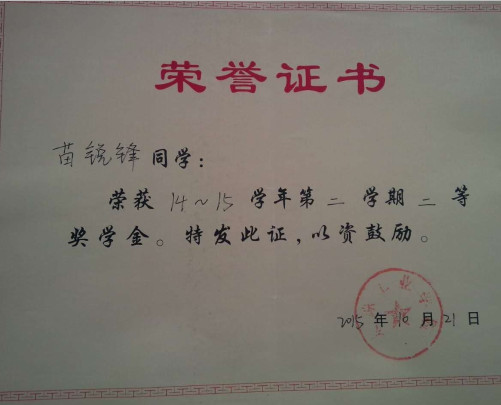 荣誉证书
苗锐锋同学:
荣获14~15学年第二学期二等
奖学金。特发此证,以资鼓励。
2015年10月21日